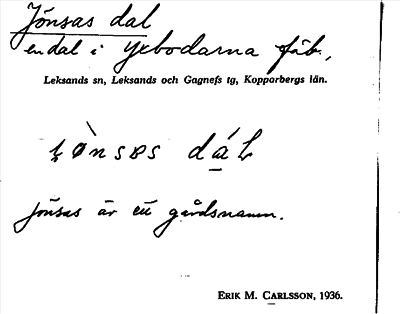 Jönsas dal
en dal i Yxbodarna fäb.,
Leksands sn, Leksands och Gagnefs tg, Kopparbergs län.
dál
Jönsas är ett gårdsnamn.
ERIK M. CARLSSON, 1936.